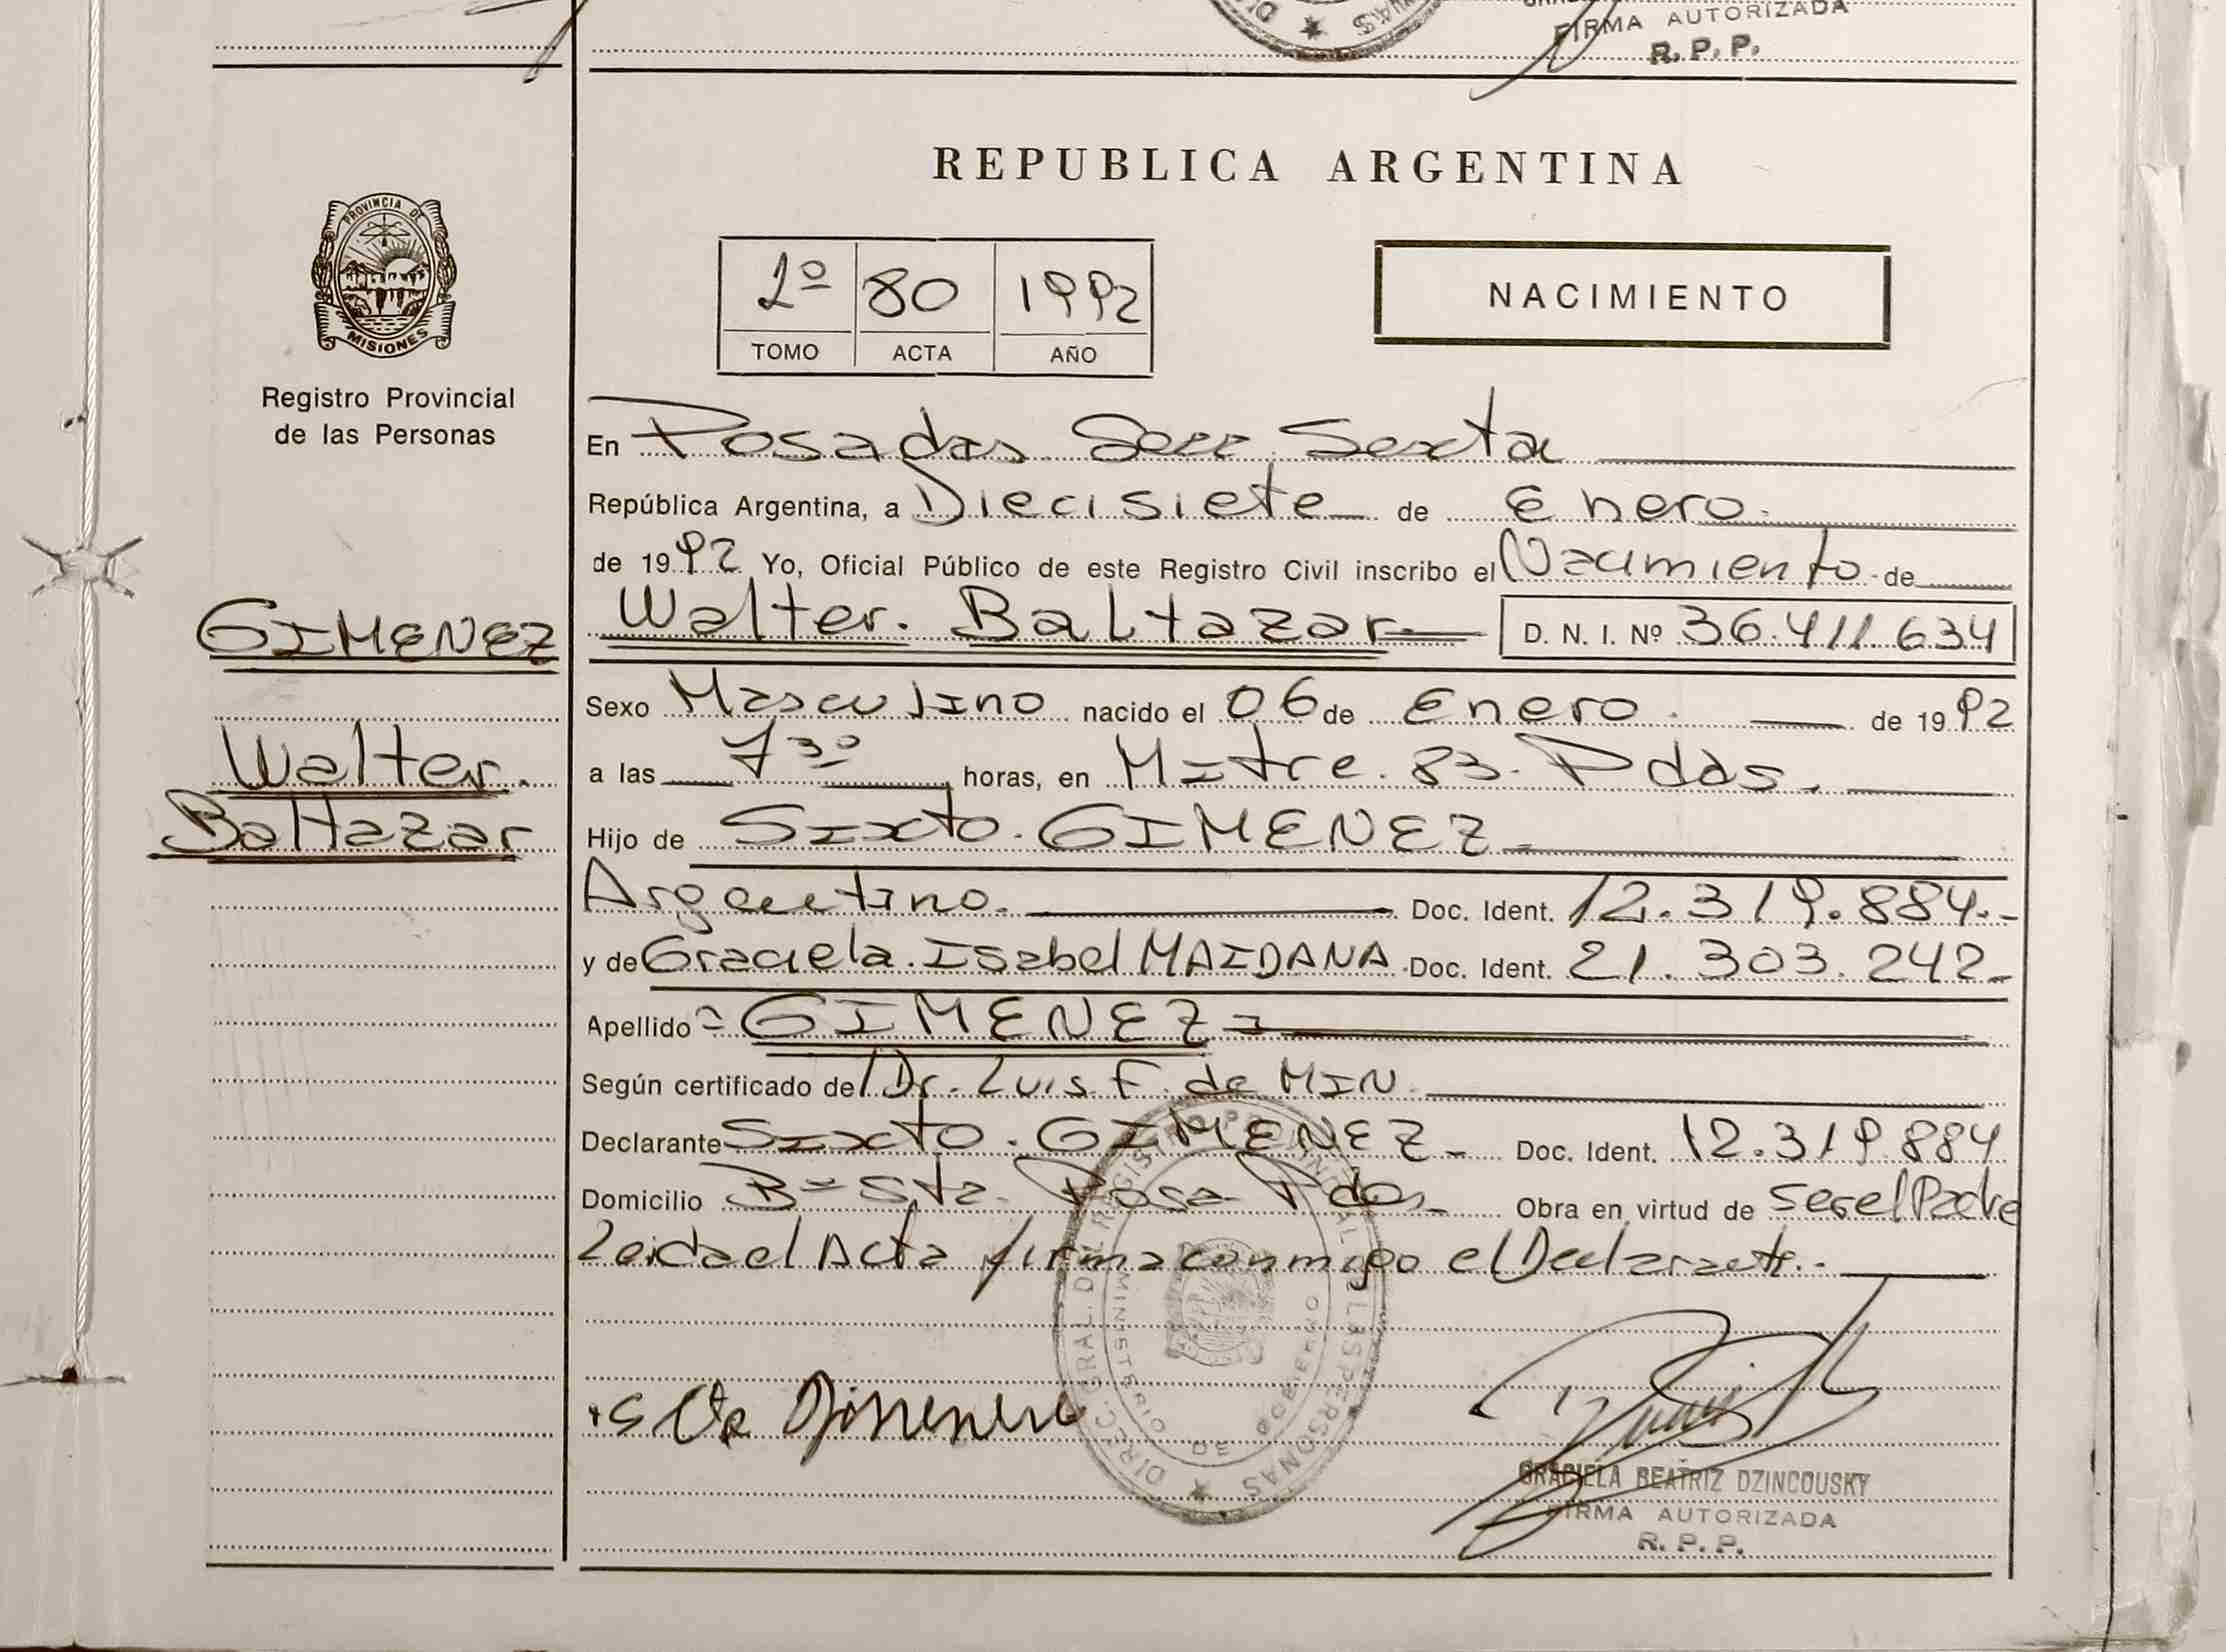 FIRMA AUTORIZADA
R. P. P.
REPUBLICA ARGENTINA
PROVINCIA DE
MISIONES
Registro Provincial
de las Personas
2º 80 1992
TOMO ACTA AÑO
NACIMIENTO
En Posadas Secc. Sexta
República Argentina, a Diecisiete de Enero.
de 1992 Yo, Oficial Público de este Registro Civil inscribo el Nacimiento de
GIMENEZ
Walter. Baltazar D. N. I. Nº 36.411.634
Sexo Masculino nacido el 06 de Enero. de 1992
Walter.
a las 7 30 horas, en Mitre. 83. Pdas.
Baltazar
Hijo de Sixto. GIMENEZ
Argentino. Doc. Ident. 12.319.884.-
y de Graciela. Isabel MAIDANA. Doc. Ident. 21.303.242-
Apellido = GIMENEZ =
Según certificado del Dr. Luis F. de MIN.
Declarante Sixto. GIMENEZ - Doc. Ident. 12.319.884
Domicilio Bº Sta. Rosa Pdas. Obra en virtud de ser el Padre
Leida el Acta firma conmigo el Declarante.
DIREC. GRAL. DEL REGISTRO PROVINCIAL DE LAS PERSONAS
MINISTERIO DE GOBIERNO
GRACIELA BEATRIZ DZINCOUSKY
FIRMA AUTORIZADA
R. P. P.